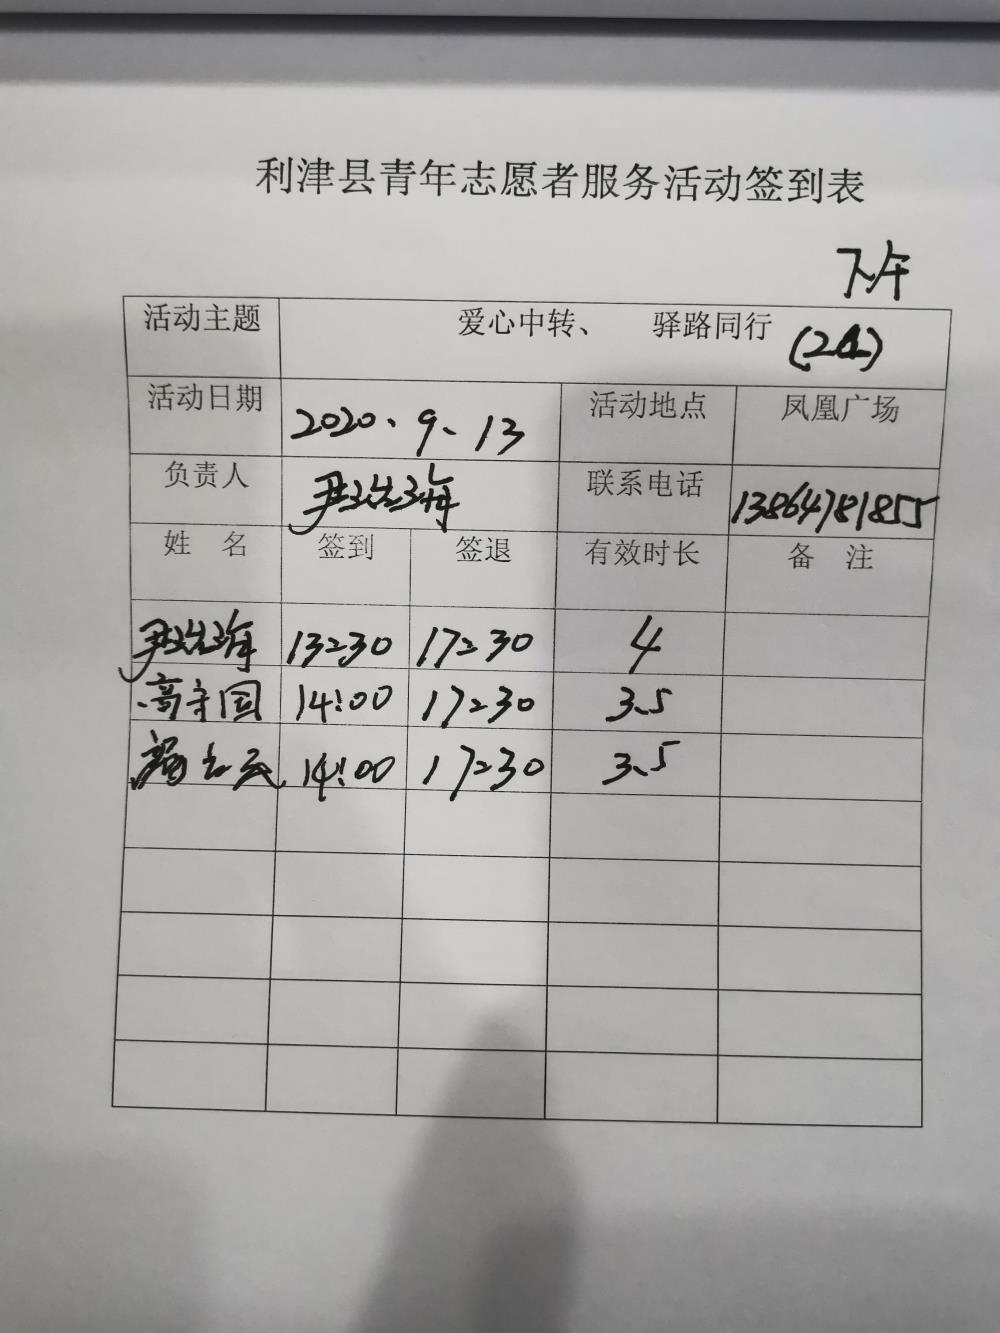 利津县青年志愿者服务活动签到表
下午
活动主题 爱心中转、 驿路同行
活动日期 2020、9、13 活动地点 凤凰广场
负责人 联系电话 13864781855
姓 名 签到 签退 有效时长 备 注
13:30 17:30 4
高守国 14:00 17:30 3.5
14:00 17:30 3.5